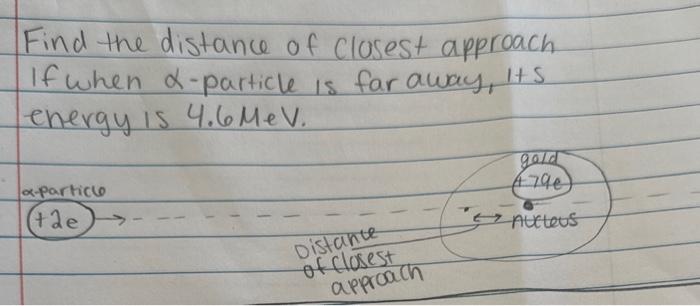 Find the distance of closest approach
If when α-particle is far away, its
energy is 4.6 MeV.
gold
+79e
α-particle
+2e
nucleus
Distance
of closest
approach